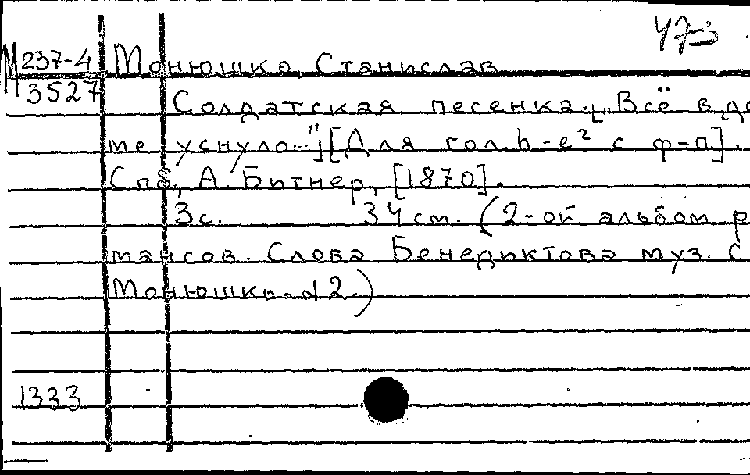 473
М 237-4 Монюшко, Станислав
3527 Солдатская песенка. [„Всё в до
ме уснуло..."] [Для гол. h-e² с ф-п].
Спб, А. Битнер, [1870].
3с. 34 см. (2-ой альбом ро
мансов. Слова Бенедиктова муз. С.
Монюшко. №2.)
1333